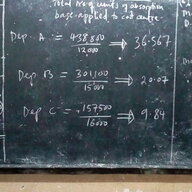 Total No of units of absorption
base applied to cost centre
Dep A := 438,800 / 12000 ⇒ 36.567
Dep B = 301,100 / 15000 ⇒ 20.07
Dep C = 157500 / 16000 ⇒ 9.84